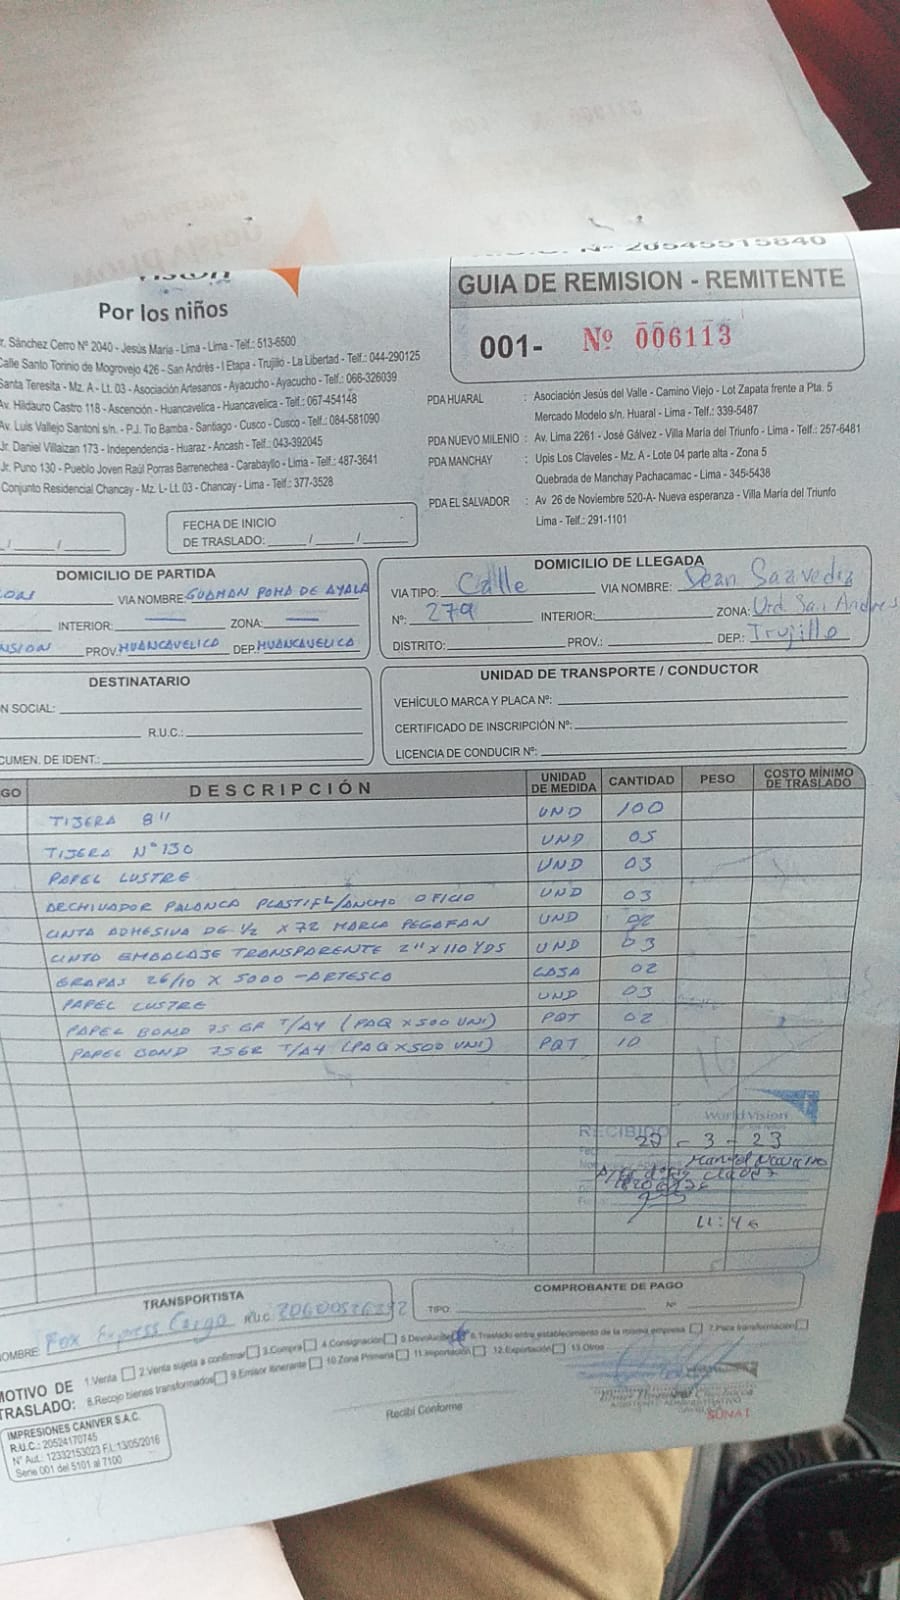 Nº 20545515840
Visión
Por los niños
GUIA DE REMISION - REMITENTE
001- Nº 006113
r. Sánchez Cerro Nº 2040 - Jesús María - Lima - Lima - Telf.: 513-6500
Calle Santo Torinio de Mogrovejo 426 - San Andrés - I Etapa - Trujillo - La Libertad - Telf.: 044-290125
Santa Teresita - Mz. A - Lt. 03 - Asociación Artesanos - Ayacucho - Ayacucho - Telf.: 066-326039
Av. Hildauro Castro 118 - Ascención - Huancavelica - Huancavelica - Telf.: 067-454148
Av. Luis Vallejo Santoni s/n. - P.J. Tio Bamba - Santiago - Cusco - Cusco - Telf.: 084-581090
Jr. Daniel Villaizan 173 - Independencia - Huaraz - Ancash - Telf.: 043-392045
Jr. Puno 130 - Pueblo Joven Raúl Porras Barrenechea - Carabayllo - Lima - Telf.: 487-3641
Conjunto Residencial Chancay - Mz. L - Lt. 03 - Chancay - Lima - Telf.: 377-3528
PDA HUARAL : Asociación Jesús del Valle - Camino Viejo - Lot Zapata frente a Pta. 5
Mercado Modelo s/n. Huaral - Lima - Telf.: 339-5487
PDA NUEVO MILENIO : Av. Lima 2261 - José Gálvez - Villa María del Triunfo - Lima - Telf.: 257-6481
PDA MANCHAY : Upis Los Claveles - Mz. A - Lote 04 parte alta - Zona 5
Quebrada de Manchay Pachacamac - Lima - 345-5438
PDA EL SALVADOR : Av 26 de Noviembre 520-A- Nueva esperanza - Villa María del Triunfo
Lima - Telf.: 291-1101
FECHA DE INICIO
DE TRASLADO: / /
DOMICILIO DE PARTIDA
VIA NOMBRE: GUAMAN POMA DE AYALA
INTERIOR: — ZONA: —
NSION PROV. HUANCAVELICA DEP. HUANCAVELICA
DOMICILIO DE LLEGADA
VIA TIPO: Calle VIA NOMBRE: Dean Saavedra
Nº: 279 INTERIOR: ZONA: Urd. San Andres
DISTRITO: PROV.: DEP.: Trujillo
DESTINATARIO
N SOCIAL:
R.U.C.:
CUMEN. DE IDENT.:
UNIDAD DE TRANSPORTE / CONDUCTOR
VEHÍCULO MARCA Y PLACA Nº:
CERTIFICADO DE INSCRIPCIÓN Nº:
LICENCIA DE CONDUCIR Nº:
GO DESCRIPCIÓN UNIDAD DE MEDIDA CANTIDAD PESO COSTO MÍNIMO DE TRASLADO
TIJERA 8" UND 100
TIJERA Nº130 UND 05
PAPEL LUSTRE UND 03
ARCHIVADOR PALANCA PLASTIFI/ANCHO OFICIO UND 03
CINTA ADHESIVA DE 1/2 X 72 MARCA PEGAFAN UND 02
CINTO EMBALAJE TRANSPARENTE 2" X 110 YDS UND 03
GRAPAS 26/10 X 5000 - ARTESCO CAJA 02
PAPEL LUSTRE UND 03
PAPEL BOND 75 GR T/A4 (PAQ X 500 UNI) PQT 02
PAPEL BOND 75GR T/A4 (PAQ X500 UNI) PQT 10
World Vision
RECIBIDO
22 - 3 - 23
Manuel Navarro
11:46
TRANSPORTISTA
OMBRE: Fox Express Cargo R.U.C. 20600526292
COMPROBANTE DE PAGO
TIPO: Nº
MOTIVO DE TRASLADO:
1.Venta 2.Venta sujeta a confirmar 3.Compra 4.Consignación 5.Devolución 6.Traslado entre establecimiento de la misma empresa 7.Para transformación
8.Recojo bienes transformados 9.Emisor itinerante 10.Zona Primaria 11.Importación 12.Exportación 13.Otros
IMPRESIONES CANIVER S.A.C.
R.U.C.: 20524170745
Nº Aut.: 12332153023 F.I.:13/05/2016
Serie 001 del 5101 al 7100
Recibí Conforme
SUNAT